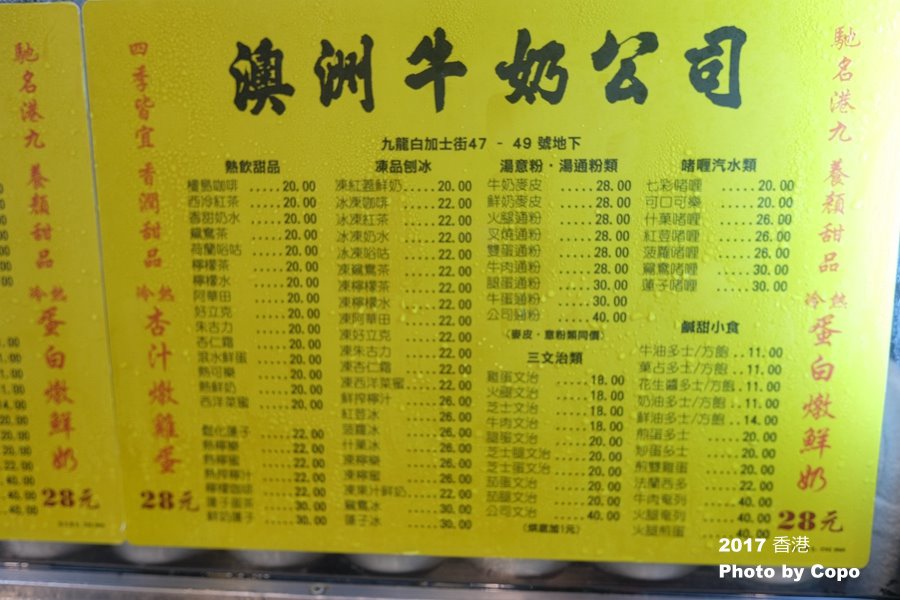 澳洲牛奶公司
九龍白加士街47 - 49 號地下
馳名港九 養顏甜品
冷熱
蛋白燉鮮奶
28元
四季皆宜 香潤甜品
冷熱
杏汁燉雞蛋
28元
熱飲甜品
西冷紅茶 ..... 20.00
香甜奶水 ..... 20.00
鴛鴦茶 ..... 20.00
荷蘭哈咕 ..... 20.00
檸檬茶 ..... 20.00
檸檬水 ..... 20.00
阿華田 ..... 20.00
好立克 ..... 20.00
朱古力 ..... 20.00
杏仁霜 ..... 20.00
滾水鮮蛋 ..... 20.00
熱可樂 ..... 20.00
熱鮮奶 ..... 20.00
西洋菜蜜 ..... 20.00
熱檸樂 ..... 22.00
熱檸蜜 ..... 22.00
熱檸檸汁 ..... 22.00
檸檬咖啡 ..... 22.00
蓮子蛋茶 ..... 30.00
鮮奶蓮子 ..... 30.00
凍品刨冰
凍紅荳鮮奶 ..... 20.00
冰凍咖啡 ..... 22.00
冰凍紅茶 ..... 22.00
冰凍奶水 ..... 22.00
冰凍哈咕 ..... 22.00
凍鴛鴦茶 ..... 22.00
凍檸檬茶 ..... 22.00
凍檸檬水 ..... 22.00
凍阿華田 ..... 22.00
凍好立克 ..... 22.00
凍朱古力 ..... 22.00
凍杏仁霜 ..... 22.00
凍西洋菜蜜 ..... 22.00
鮮搾檸汁 ..... 26.00
紅荳冰 ..... 26.00
菠蘿冰 ..... 26.00
什菓冰 ..... 26.00
凍檸樂 ..... 26.00
凍檸蜜 ..... 26.00
凍菓汁鮮奶 ..... 22.00
鴛鴦冰 ..... 30.00
蓮子冰 ..... 30.00
湯意粉・湯通粉類
牛奶麥皮 ..... 28.00
鮮奶麥皮 ..... 28.00
火腿通粉 ..... 28.00
叉燒通粉 ..... 28.00
雙蛋通粉 ..... 28.00
牛肉通粉 ..... 28.00
腿蛋通粉 ..... 30.00
牛蛋通粉 ..... 30.00
公司通粉 ..... 40.00
(麥皮・意粉類同價)
三文治類
雞蛋文治 ..... 18.00
火腿文治 ..... 18.00
芝士文治 ..... 18.00
牛肉文治 ..... 18.00
腿蛋文治 ..... 20.00
芝士腿文治 ..... 20.00
芝士蛋文治 ..... 20.00
茄蛋文治 ..... 20.00
茄腿文治 ..... 20.00
公司文治 ..... 40.00
(烘底加1元)
啫喱汽水類
七彩啫喱 ..... 20.00
可口可樂 ..... 20.00
什菓啫喱 ..... 26.00
紅荳啫喱 ..... 26.00
菠蘿啫喱 ..... 26.00
鴛鴦啫喱 ..... 30.00
蓮子啫喱 ..... 30.00
鹹甜小食
牛油多士/方飽 .. 11.00
菓占多士/方飽 .. 11.00
花生醬多士/方飽 .. 11.00
奶油多士/方飽 .. 11.00
鮮油多士/方飽 .. 14.00
煎蛋多士 ..... 20.00
炒蛋多士 ..... 20.00
煎雙雞蛋 ..... 20.00
法蘭西多 ..... 22.00
牛肉奄列 ..... 40.00
火腿奄列 ..... 40.00
火腿煎蛋 ..... 40.00
馳名港九 養顏甜品
冷熱
蛋白燉鮮奶
28元
2017 香港
Photo by Copo